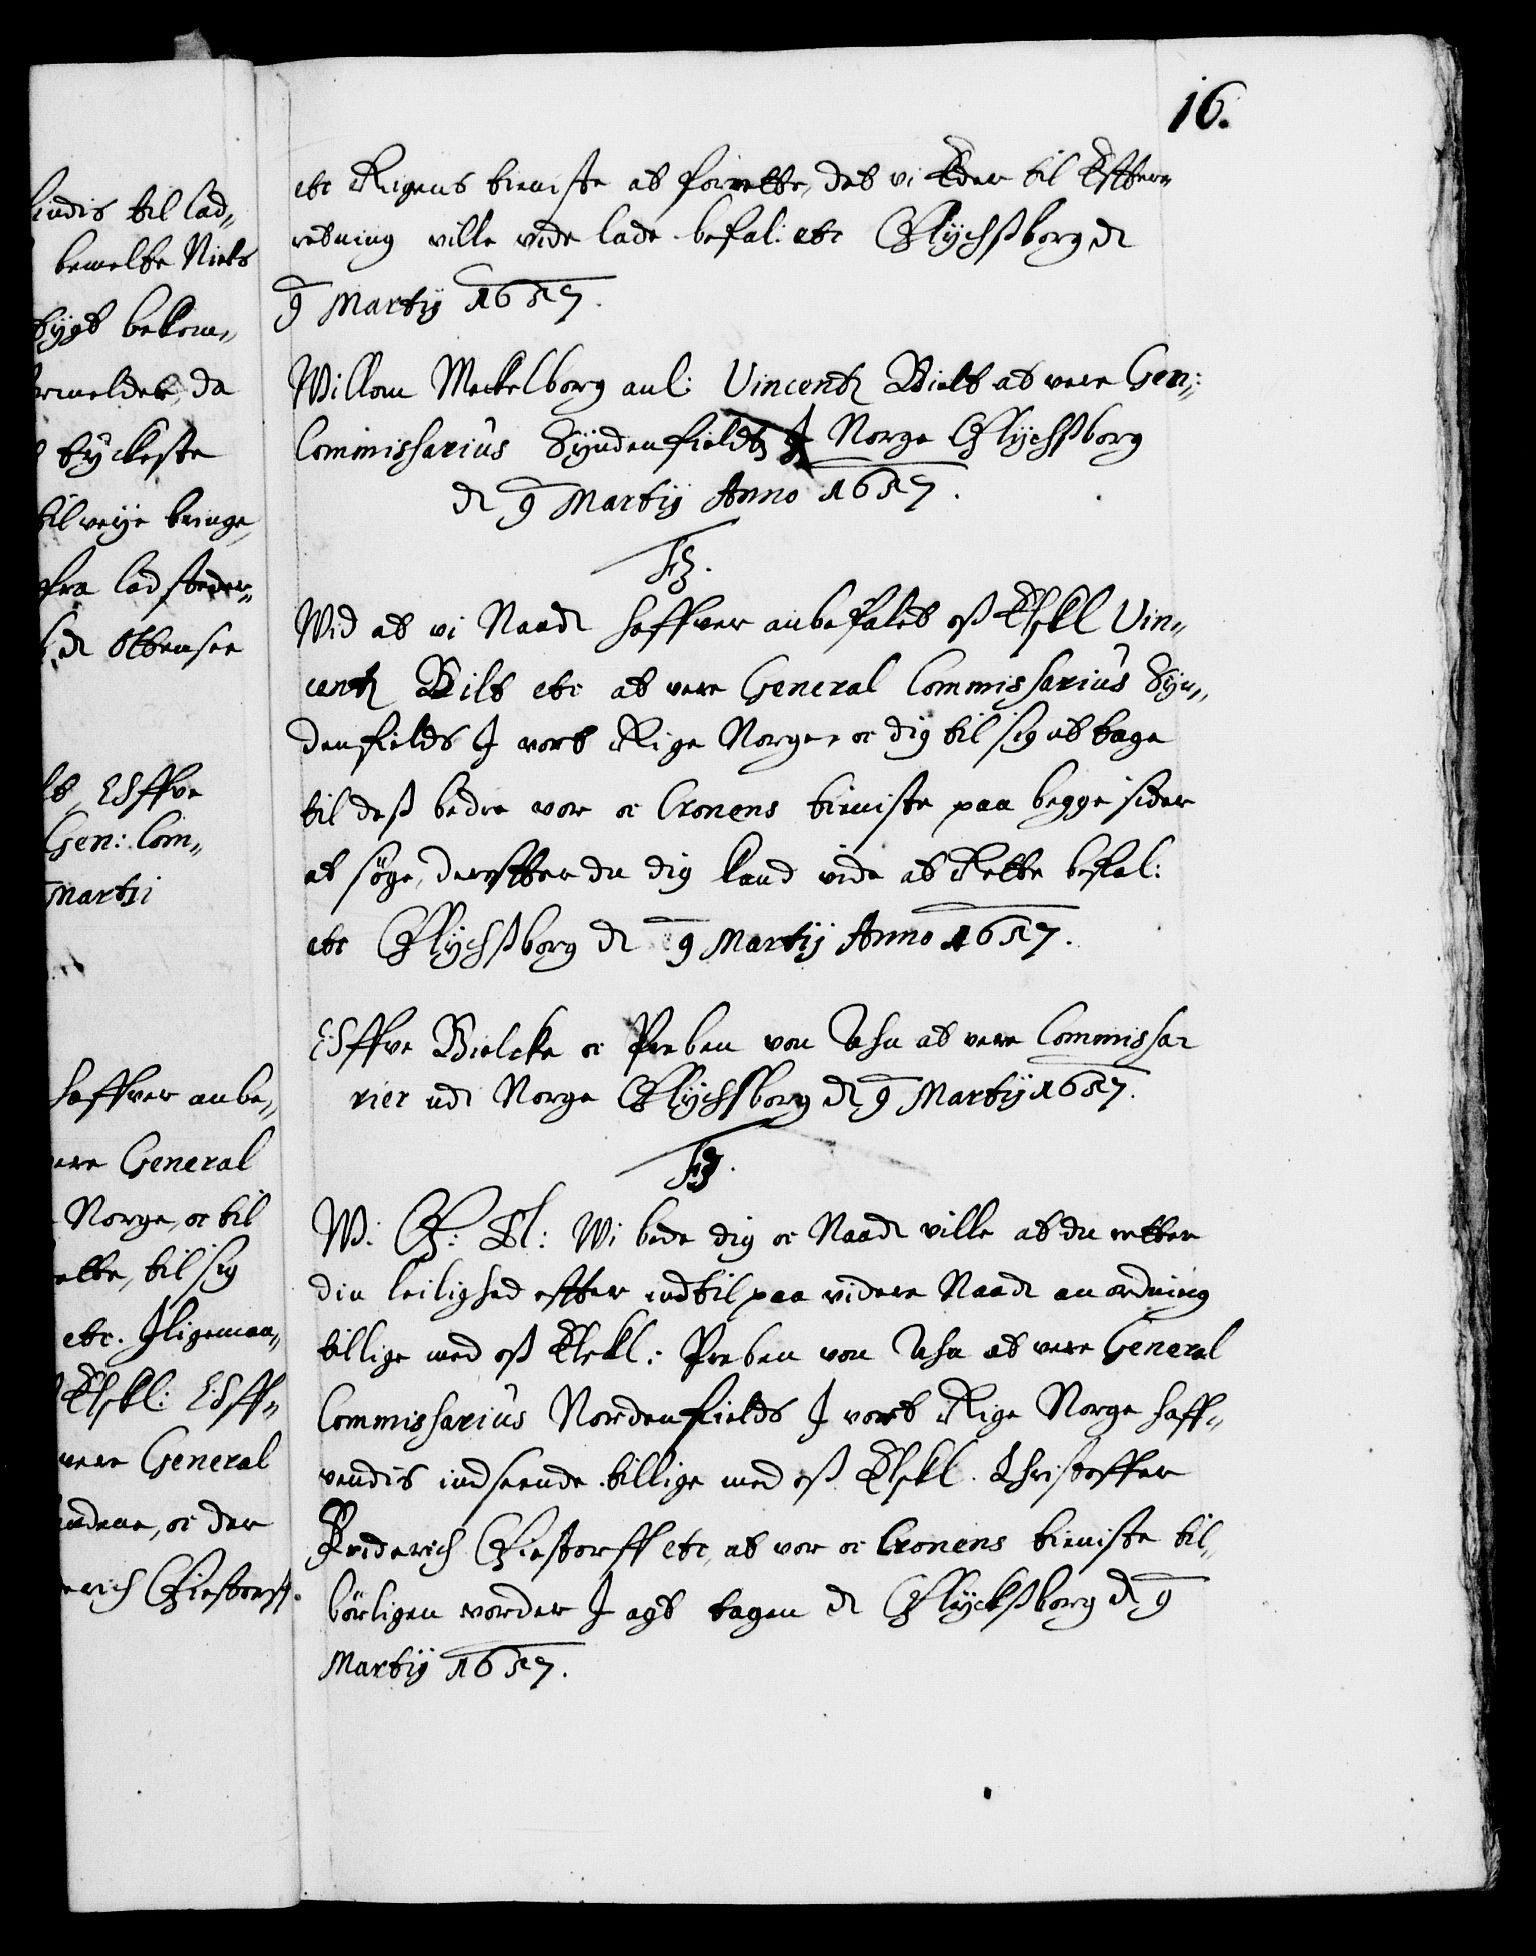 16.
etc Rigens tieniste at forrette, det vi Eder til Efter-
retning ville vide lade. befal: etc Glÿchßborg d
9 Martij 1657.
Willom Meckelborg anl: Vincentz Bielt at vere Gen:
Commissarius Sÿndenfields I Norge Glÿchßborg
d 9 Martij Anno 1657.
F3.
Wid at vi Naadi. haffver anbefalet oß Elskl Vin-
centz Bilt etc at vere General Commissarius Sÿn-
denfields I vort Rige Norge, oc dig til sig at tage
til deß bedre vor oc Cronens tieniste paa begge sider
at söge, derefter du dig kand vide at Rette befal:
etc Glÿchßborg d 9 Martij Anno 1657.
Eiffve Bielcke oc Preben von Ahn at vere Commissa-
rier udi Norge Glÿchßborg d 9 Martij 1657.
F3.
W: G: Tl: Wi bede dig oc Naadi. ville at du retter
din leilighed effter indtil paa videre Naadi. anordning
billige med oß Elskl: Preben von Ahn at vere General
Commissarius Nordenfields I vort Rige Norge haff-
vendis indseende. billige med oß Elskl. Christoffer
Friderich Giestorff etc, at vor oc Cronens tieniste til-
börligen vorder I agt tagen d Glÿckßborg d 9
Martij 1657.
endis til lad-
bemelte Niels
bekom-
ormeldet, da
tÿckeste
til veÿe bringe,
fra ladsteder-
d Ottensee
Eiffve
Gen: Com-
Martii
haffver anbe-
vere General
Norge, oc til
rette, til sig
etc. Iligemaa-
Elskl: Eiff-
vere General
oc der
erich Giestorff.